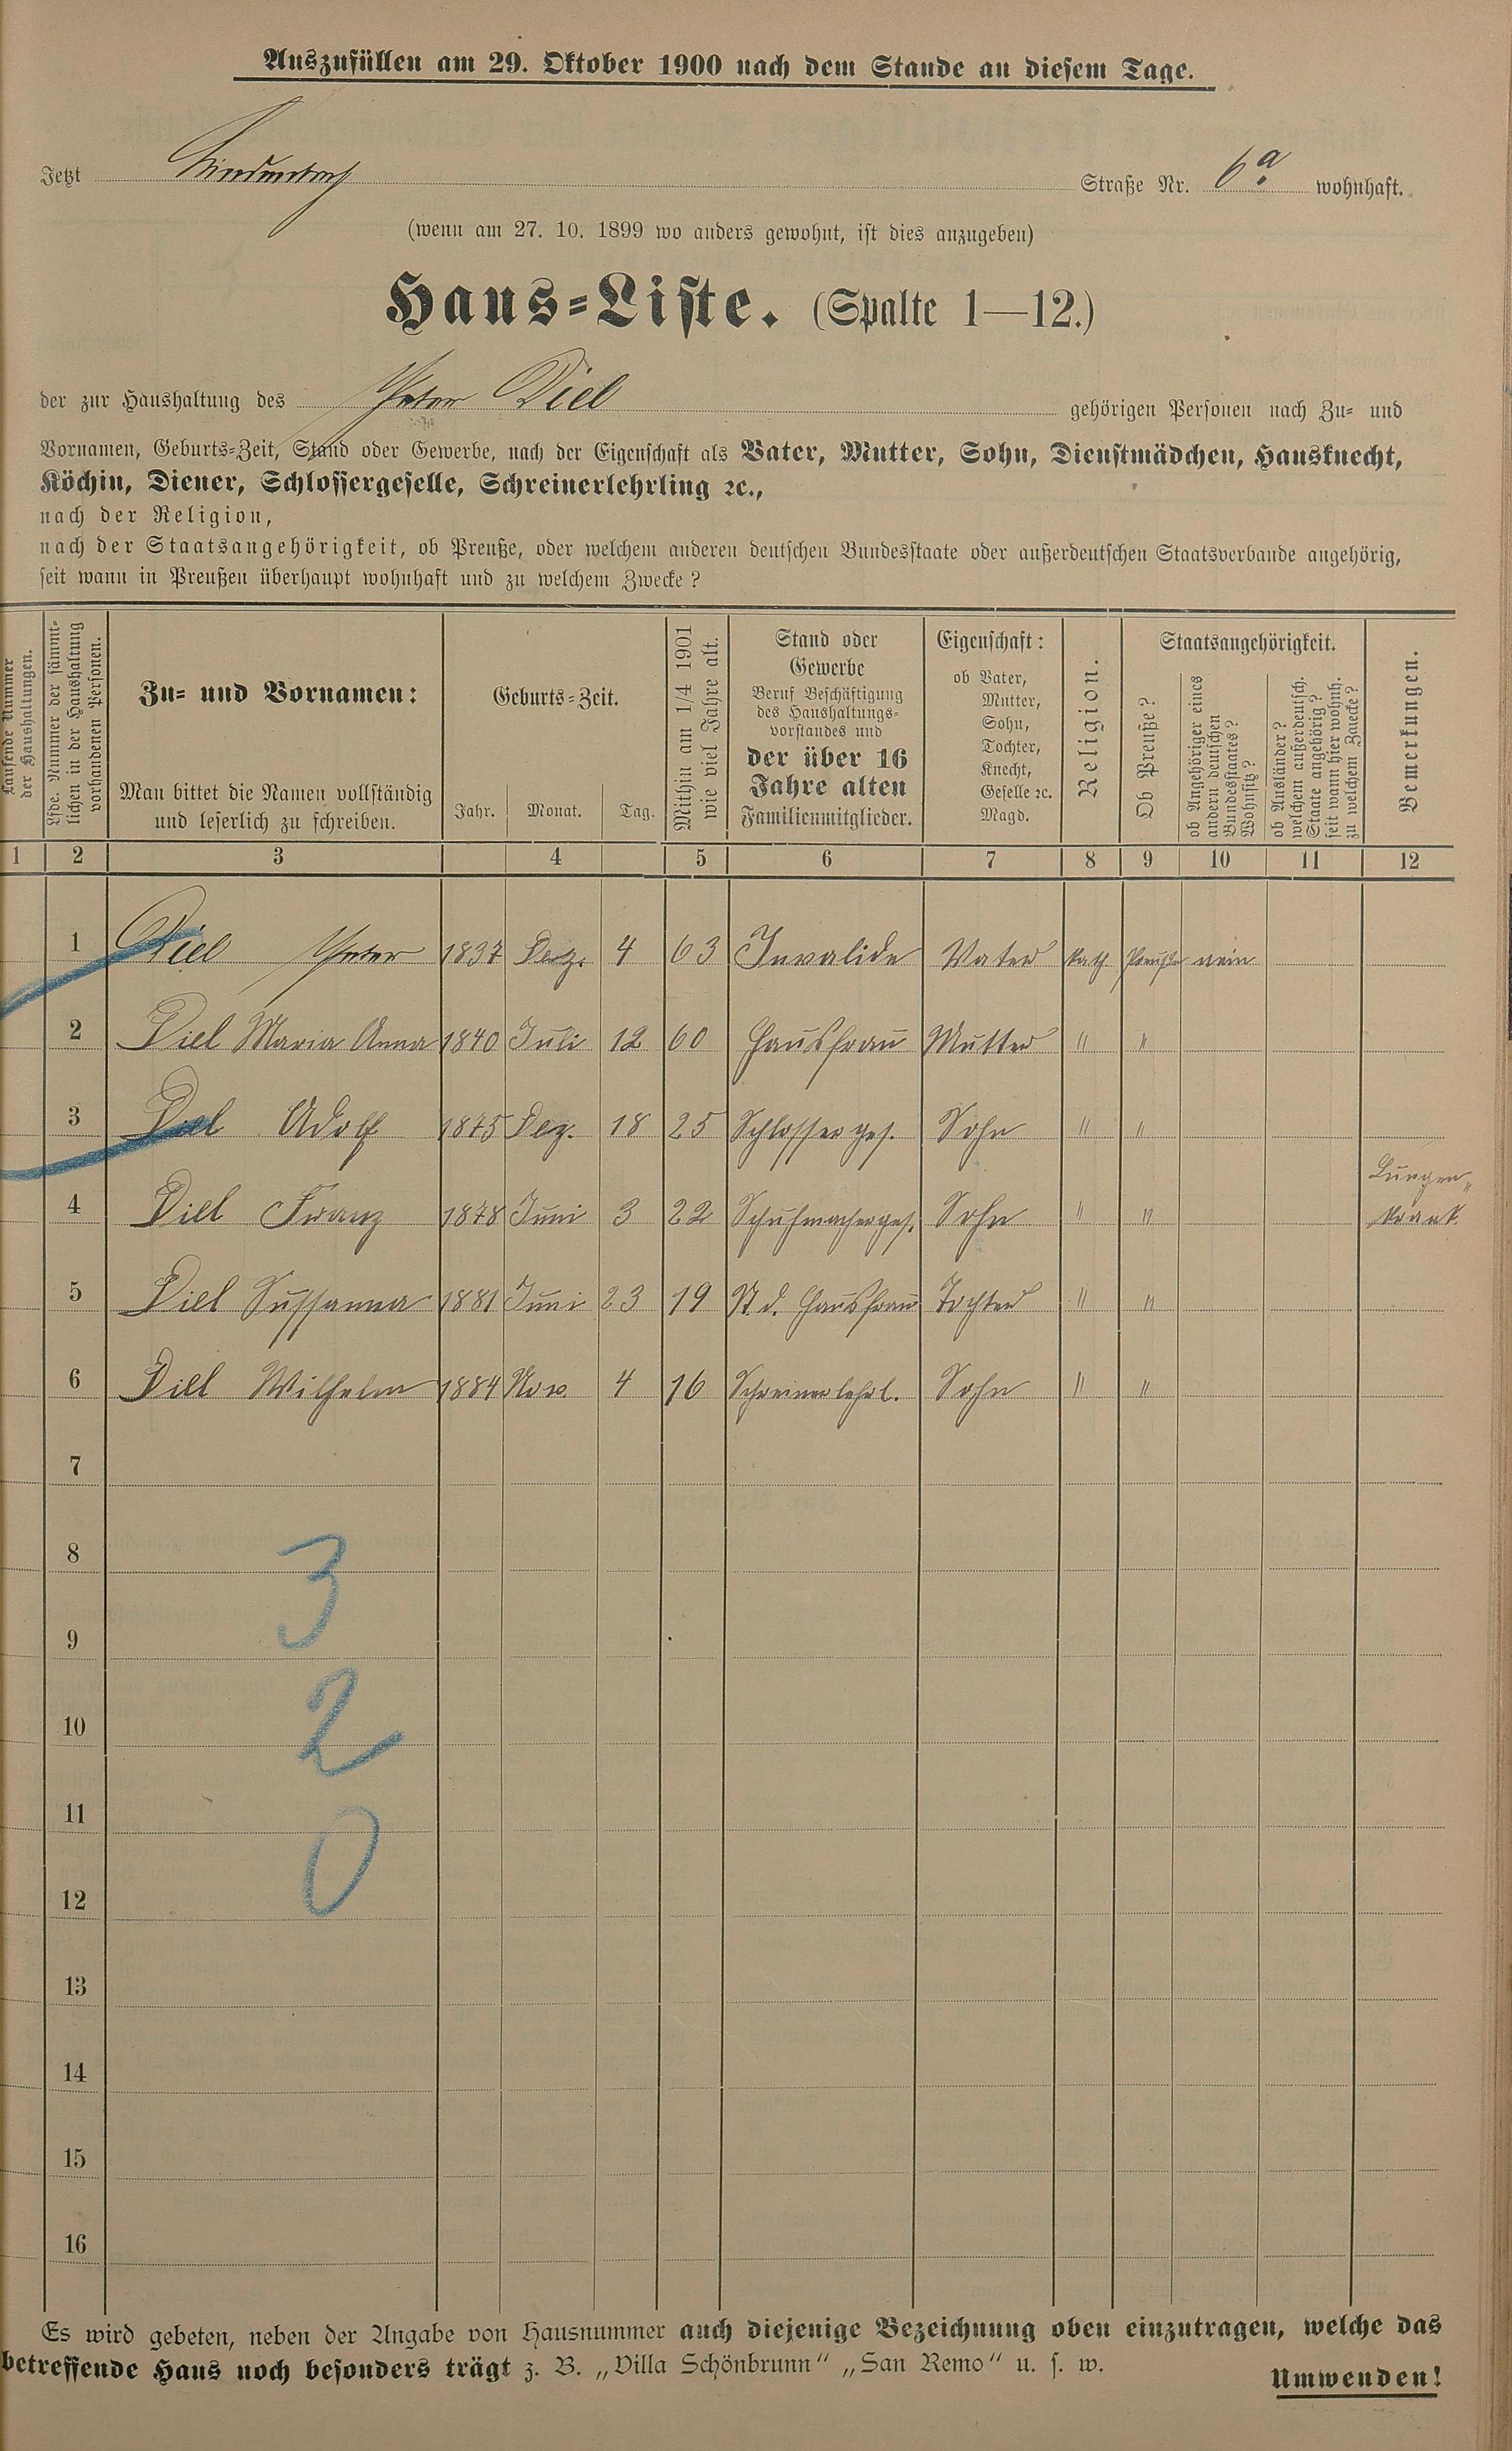 Auszufüllen am 29. Oktober 1900 nach dem Stande an diesem Tage.
Jetzt Straße Nr. 6a wohnhaft.
(wenn am 27. 10. 1899 wo anders gewohnt, ist dies anzugeben)
Haus-Liste. (Spalte 1—12.)
der zur Haushaltung des Peter Diel gehörigen Personen nach Zu- und
Vornamen, Geburts-Zeit, Stand oder Gewerbe, nach der Eigenschaft als Vater, Mutter, Sohn, Dienstmädchen, Hausknecht,
Köchin, Diener, Schlossergeselle, Schreinerlehrling ꝛc.,
nach der Religion,
nach der Staatsangehörigkeit, ob Preuße, oder welchem anderen deutschen Bundesstaate oder außerdeutschen Staatsverbande angehörig,
seit wann in Preußen überhaupt wohnhaft und zu welchem Zwecke?
Laufende Nummer
der Haushaltungen.
Lfde. Nummer der sämmt-
lichen in der Haushaltung
vorhandenen Personen.
Zu- und Vornamen:
Man bittet die Namen vollständig
und leserlich zu schreiben.
Geburts-Zeit.
Jahr. Monat. Tag.
Mithin am 1/4 1901
wie viel Jahre alt.
Stand oder
Gewerbe
Beruf Beschäftigung
des Haushaltungs-
vorstandes und
der über 16
Jahre alten
Familienmitglieder.
Eigenschaft:
ob Vater,
Mutter,
Sohn,
Tochter,
Knecht,
Geselle ꝛc.
Magd.
Religion.
Staatsangehörigkeit.
Ob Preuße?
ob Angehöriger eines
andern deutschen
Bundesstaates?
Wohnsitz?
ob Ausländer?
welchem außerdeutsch.
Staate angehörig?
seit wann hier wohnh.
zu welchem Zwecke?
Bemerkungen.
1 2 3 4 5 6 7 8 9 10 11 12
1 Diel Peter 1837 Dez. 4 63 Invalide Vater kath Preuße nein
2 Diel Maria Anna 1840 Juli 12 60 Hausfrau Mutter " "
3 Diel Adolf 1875 Dez. 18 25 Schlosserges. Sohn " "
4 Diel Franz 1878 Juni 3 22 Schuhmacherges. Sohn " " Lungen-
krank.
5 Diel Sussanna 1881 Juni 23 19 St d. Hausfrau Tochter " "
6 Diel Wilhelm 1884 Nov. 4 16 Schreinerlehrl. Sohn " "
7
8
3
9
10
2
11
0
12
13
14
15
16
Es wird gebeten, neben der Angabe von Hausnummer auch diejenige Bezeichnung oben einzutragen, welche das
betreffende Haus noch besonders trägt z. B. „Villa Schönbrunn“ „San Remo“ u. s. w.
Umwenden!